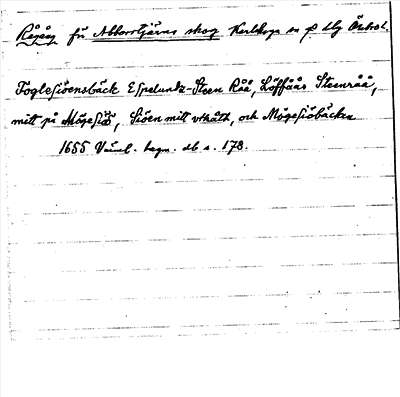 Rågång för Abborrtjärns skog Karlskoga sn o hd Örebro l.
Foglesiöensbäck Espelundz-Steen Råå, Löffåås Steenråå,
mitt på Mögesiöö, Siöen mitt uthåth, och Mögesiöbäcken
1655 Värml. hegn. db s. 178.